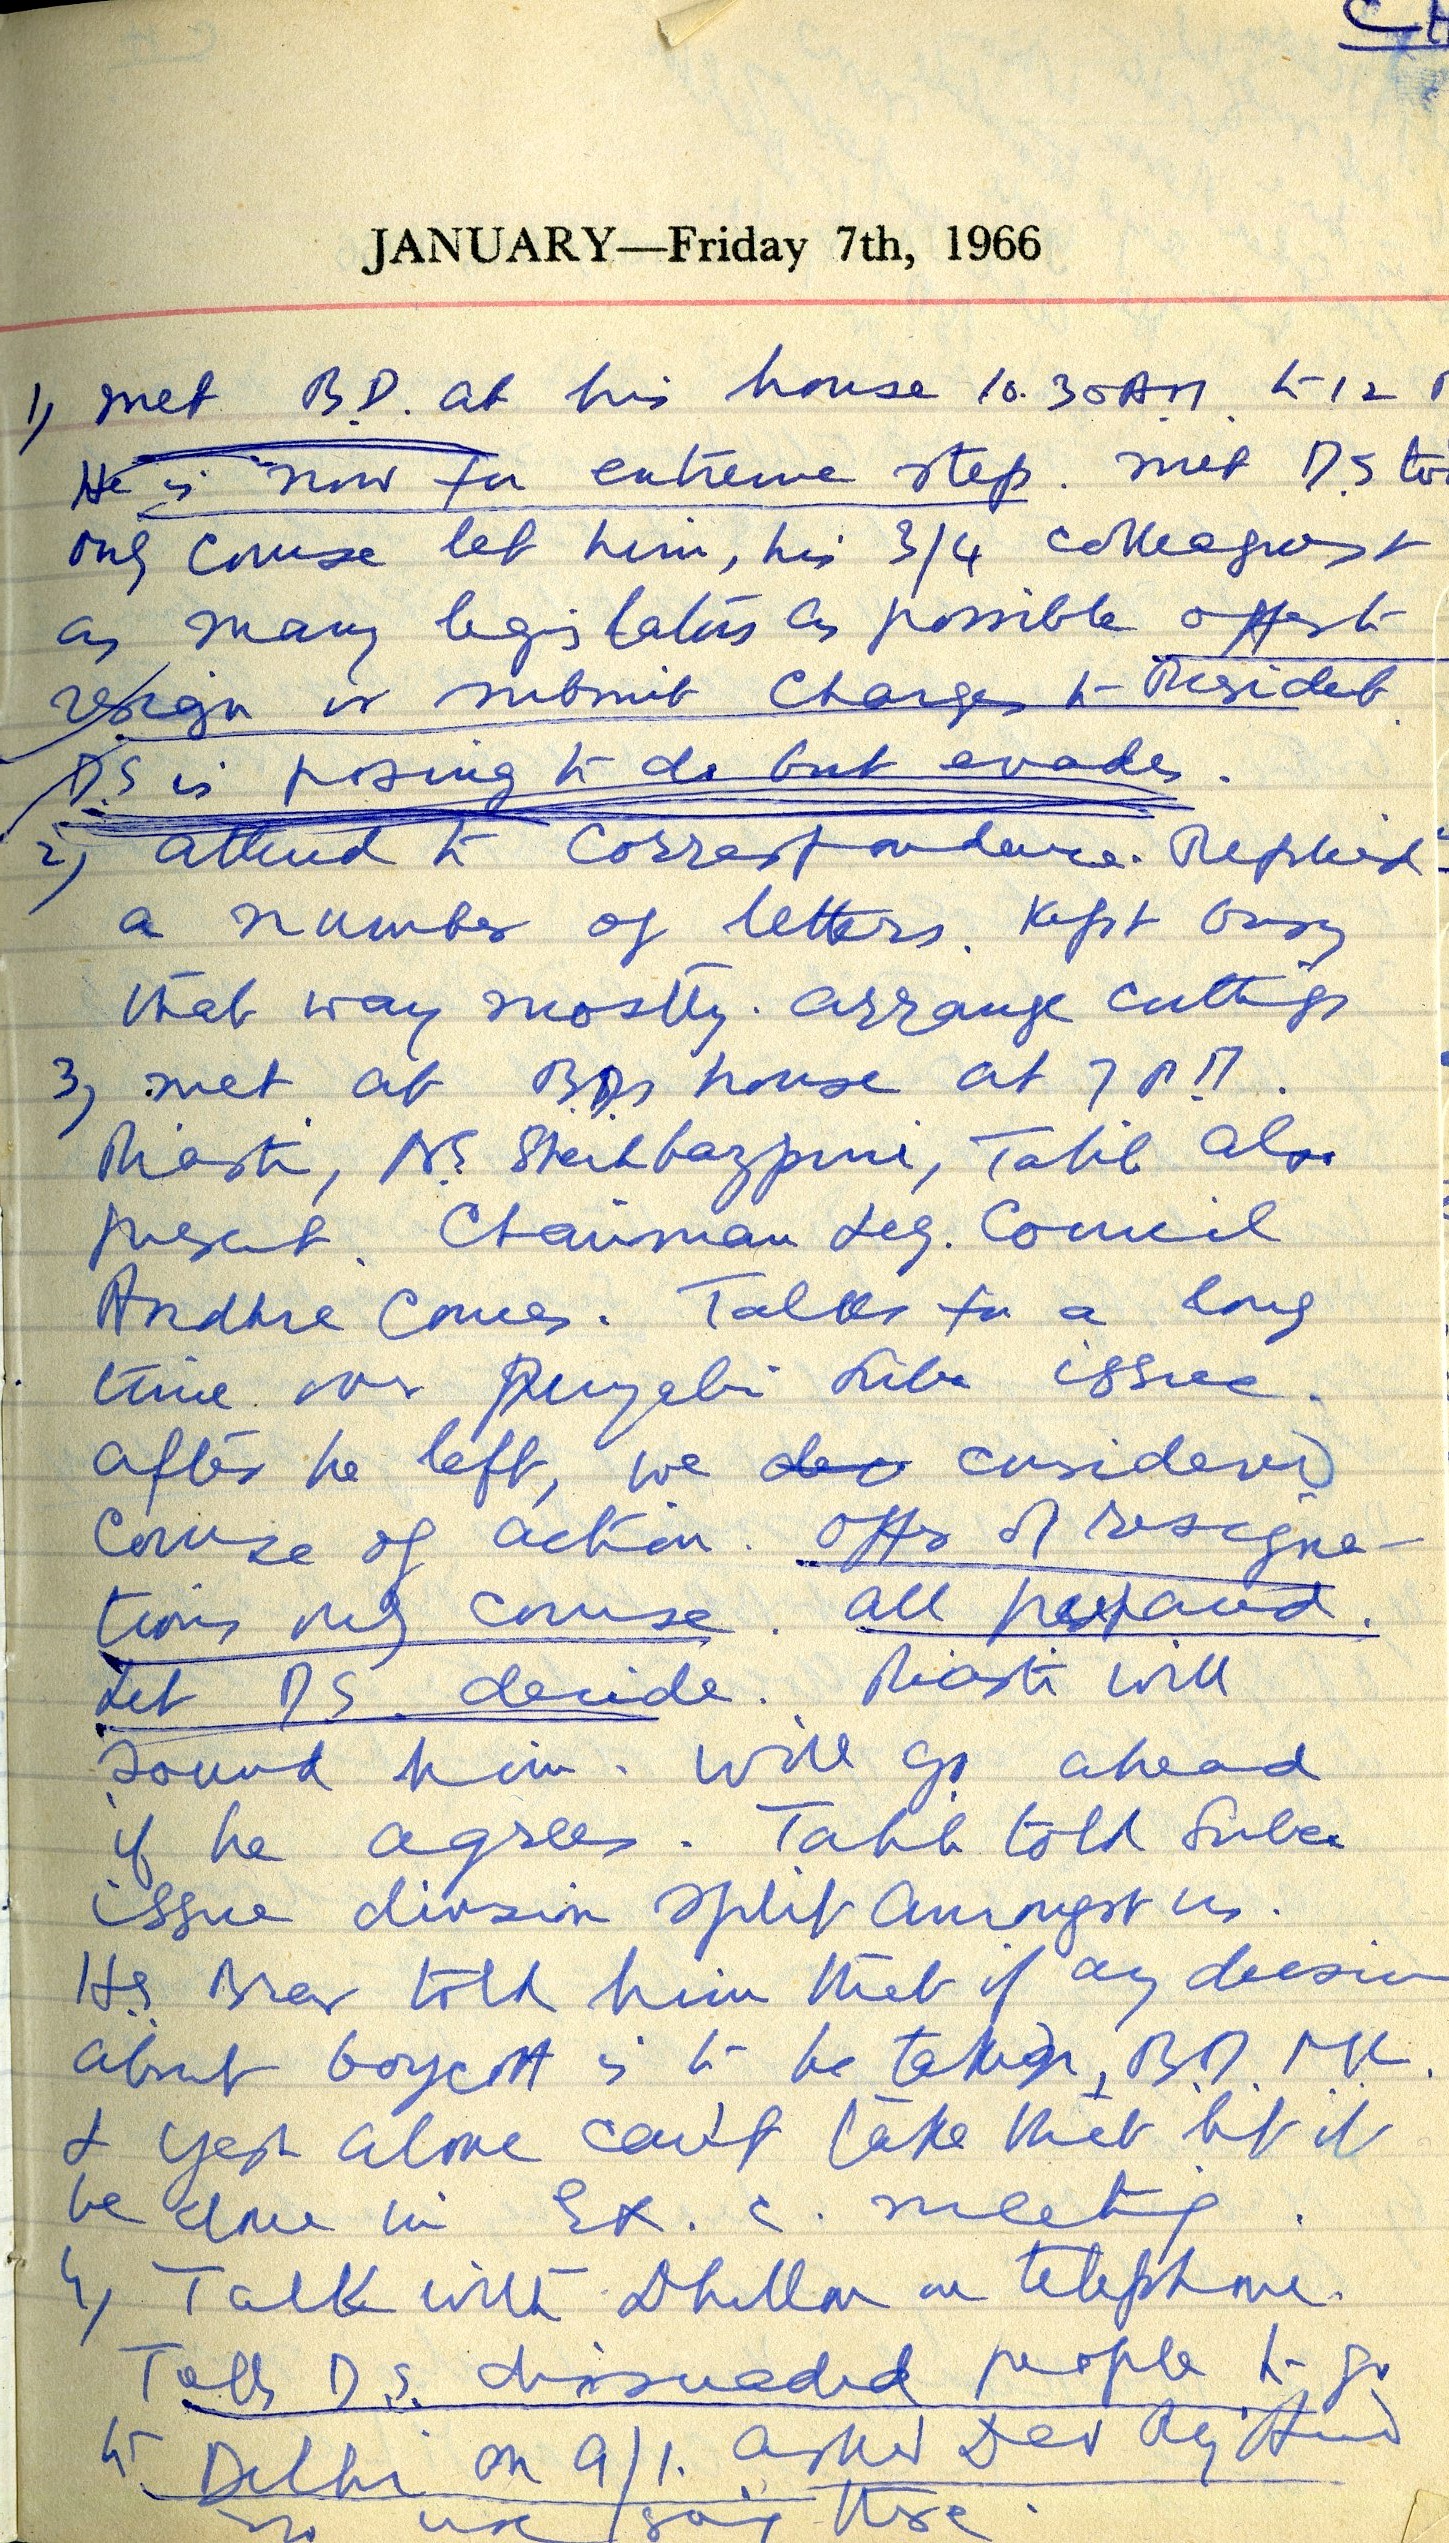 CH
JANUARY—Friday 7th, 1966
1) met B.D. at his house 10.30 A.M. to 12
He is now for extreme step. met D.S too
only course let him, his 3/4 colleagues &
as many legislators as possible offer to
resign or submit charges to President.
D.S is posing to do but evades.
2) attend to correspondence. Replied
a number of letters. Kept busy
that way mostly. arrange cuttings
3) met at BDs house at 7 P.M.
Riasti, N.S. Shahbazpuri, Talib also
present. Chairman Leg. Council
Andhra comes. Talks for a long
time over Punjabi Suba issue.
after he left, we considered
course of action. offer of resigna-
tions only course. all prepared.
Let D.S. decide. Riasti will
sound him. will go ahead
if he agrees. Talib told Suba
issue division split amongst us.
H.S. Brar told him that if any decision
about boycott is to be taken, B.D. M.K.
& Yash alone can't take that let it
be done in Ex. C. meeting.
4) Talk with Dhillon on telephone.
Tells D.S. dissuaded people to go
to Delhi on 9/1. asked Dev Raj Anand
no use going there.